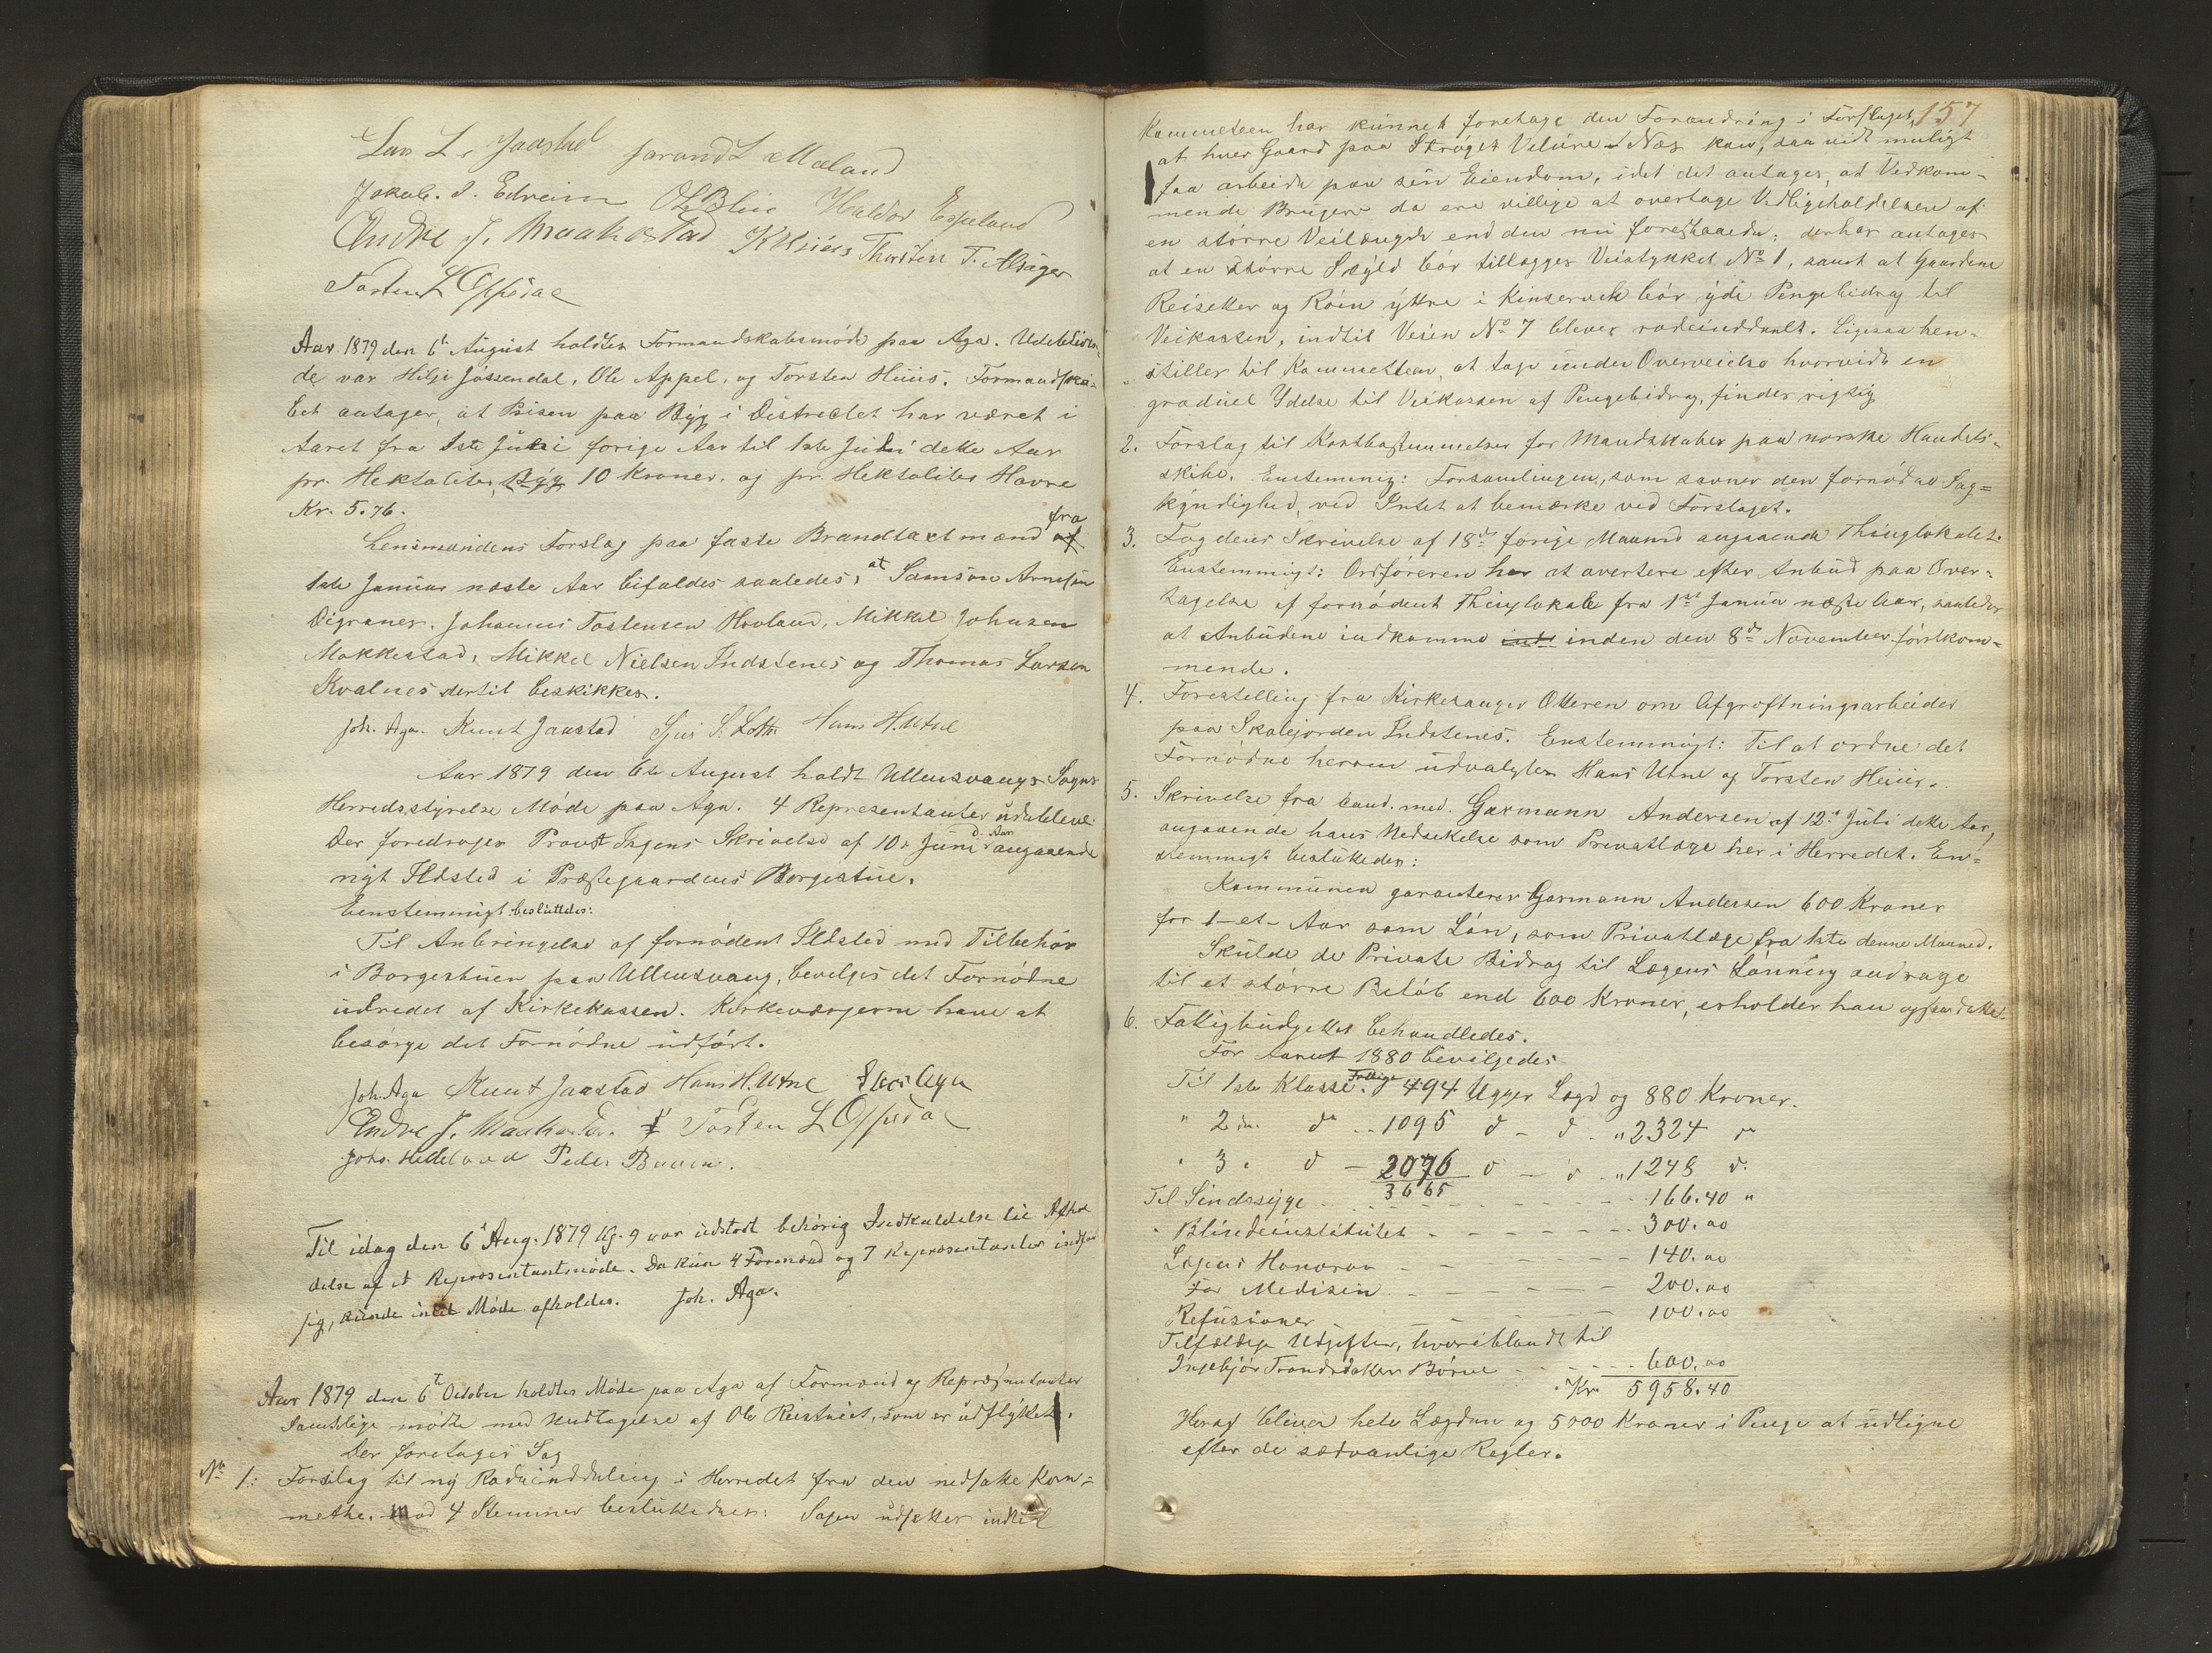 Lars L. Jaastad Jorand L. Mæland
Jakob. J. Edreim O. Blie Haldor Espeland
Endre J. Maakestad K Huus Thorsten T. Alsager
Torsten L Oppedal
Aar 1879 den 6t August holdtes Formandskabsmøde paa Aga. Udebliven-
de var Hilje Jøssendal, Ole Appel, og Torsten Huus. Formandska-
bet antager, at Prisen paa Byg i Districtet har været i
Aaret fra 1ste Juli forige Aar til 1ste Juli dette Aar
pr. Hektoliter Byg 10 Kroner. og pr. Hektoliter Havre
Kr. 5.76.
Lensmandens Forslag paa faste Brandtaxtmænd af fra
1ste Januar næste Aar bifaldes saaledes, at Samson Arnesen
Digranes, Johannes Tostensen Hovland, Mikkel Johnsen
Makkestad, Mikkel Nielsen Indstenes og Thomas Larsen
Kvalnes dertil beskikkes.
Joh. Aga. Knut Jaastad Sjur S. Lothe Hans H. Utne
Aar 1879 den 6te August holdt Ullensvangs Sogns
Herredsstyrelse Møde paa Aga. 4 Representanter udebleve
Der foredroges Provst Irgens Skrivelse af 10de Juni d. Aar angaaende
nyt Ildsted i Præstegaardens Borgestue.
Eenstemmigt besluttedes:
Til Anbringelse af fornødent Ildsted med Tilbehør
i Borgestuen paa Ullensvang, bevilges det Fornødne
udredet af Kirkekassen. Kirkeværgerne have at
besørge det Fornødne udført.
Joh. Aga Knut Jaastad Hans H. Utne Aga
Endre J. Maakestad Torsten L Oppedal
Johs. Hedelvad Peder Buuen.
Til idag den 6t Aug. 1879 Kl. 9 var udstædt behørig Indkaldelse til Afhol
delse af et Representantmøde. Da kun 4 Formænd og 7 Representanter indfar
sig, kunde intet Møde afholdes. Joh. Aga.
Aar 1879 den 6te October holdtes Møde paa Aga af Formænd og Repræsentanter
Samtlige mødte med Undtagelse af Ole Reisæter, som er udflyttet.
Der foretoges Sag
No 1: Forslag til ny Rodeinddeling i Herredet fra den nedsatte Kom-
mette. Mod 4 Stemmer besluttedes: Sagen udsættes indtil
157
Kommeteen har kunnet foretage den Forandring i Forslaget,
at hver Gaard paa Strøget Velure - Næs kan, saavidt muligt
faa arbeide paa sin Eiendom, idet det antages, at Vedkom-
mende Brugere da ere villige at overtage Vedligeholdelsen af
en større Veilængde end den nu foreslaaede; derhos antages
at en større Skyld bør tillægges Veistykket No 1, samt at Gaardene
Reisæter og Røin ytre i Kinservik bør yde Pengebidrag til
Veikassen, indtil Veien No 7 bliver rodeinddeelt. Ligesaa hen-
stiller til Kommetteen, at tage under Overveielse hvorvidt en
graduel Ydelse til Veikassen af Pengebidrag, findes rigtig
2. Forslag til Kostbestemmelser for Mandskaber paa norske Handels-
skibe. Enstemmig: Forsamlingen, som savner den fornødne Sag=
kyndighed, ved Intet at bemærke ved Forslaget.
3. Fogdens Skrivelse af 18de forige Maaned angaaende Thinglokalet.
Eenstemmigt: Ordføreren har at avertere efter Anbud paa Over-
tagelse af fornødent Thinglokale fra 1ste Januar næste Aar, saaledes
at Anbudene indkomme inden den 8de November førstkom-
mende.
4. Forestilling fra Kirkesanger Otteren om Afgrøftningsarbeider
paa Skolejorden Indstenes. Enstemmigt: Til at ordne det
Fornødne herom udvalgtes Hans Utne og Torsten Huus.
5. Skrivelse fra Cand. med. Garmann Andersen af 12te Juli dette Aar,
angaaende hans Nedsettelse som Privatlæge her i Herredet. En=
stemmigt besluttedes:
Kommunen garanterer Garmann Andersen 600 Kroner
for 1 - et - Aar som Løn, som Privatlæge fra 1ste denne Maaned.
Skulde de Private Bidrag til Lægens Lønning andrage
til et større Beløb end 600 Kroner, erholder han ogsaa dette.
6. Fattigbudgettet behandledes.
For Aaret 1880 bevilgedes
Til 1ste Klasse Fattige. 494 Uger Lægd og 880 Kroner.
" 2den do .. 1095 do - do " 2324 do
" 3. do - 2076 do - do " 1248 do.
3665
Til Sindssyge - - - 166.40 "
" Blindeinstitutet - - - 300.00
Lægens Honorar - - - 140.00
For Medisin - - - 200.00
Refusioner - - - 100.00
Tilfældige Udgifter, hvoriblandt til
Ingebjør Trondsdatters Børn - - - 600.00
Kr. 5958.40
Heraf bliver hele Lægden og 5000 Kroner i Penge at udligne
efter de sædvanlige Regler.